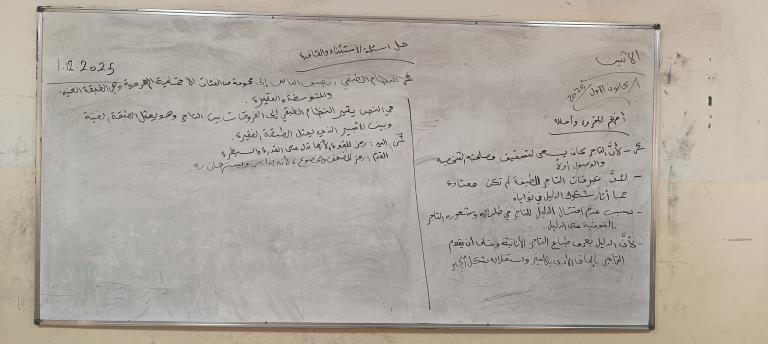 الاثنين
١/كانون الأول/2025
أفهم المقروء وأحلله
ع٤- لأنَّ التاجر كان يسعى لتحقيق مصلحته الشخصية
والوصول أولاً
- لأنَّ تصرفات التاجر اللطيفة لم تكن معتادة
مما أثار شكوك الدليل في نواياه
- بسبب عدم امتثال الدليل للتاجر في طلباته وشعوره التاجر
بالفوقية على الدليل.
- لأنَّ الدليل يعرف طباع التاجر الأنانية وخاف أن يقوم
التاجر بإلحاق الأذى بالأجير واستغلاله بشكل أكبر
حل أسئلة الاستثناء والقاعدة
1.12.2025
النظام الطبقي: تصنيف الناس إلى مجموعة من الفئات الاجتماعية وهي الطبقة الغنية
والمتوسطة والفقيرة.
في النص يشير النظام الطبقي إلى الفروقات بين التاجر وهو يمثل الطبقة الغنية
وبين الأجير الذي يمثل الطبقة الفقيرة.
اليد: رمز للقوة لأنها تدل على القدرة والسيطرة
القدم: رمز للضعف والخضوع لأنه يداس